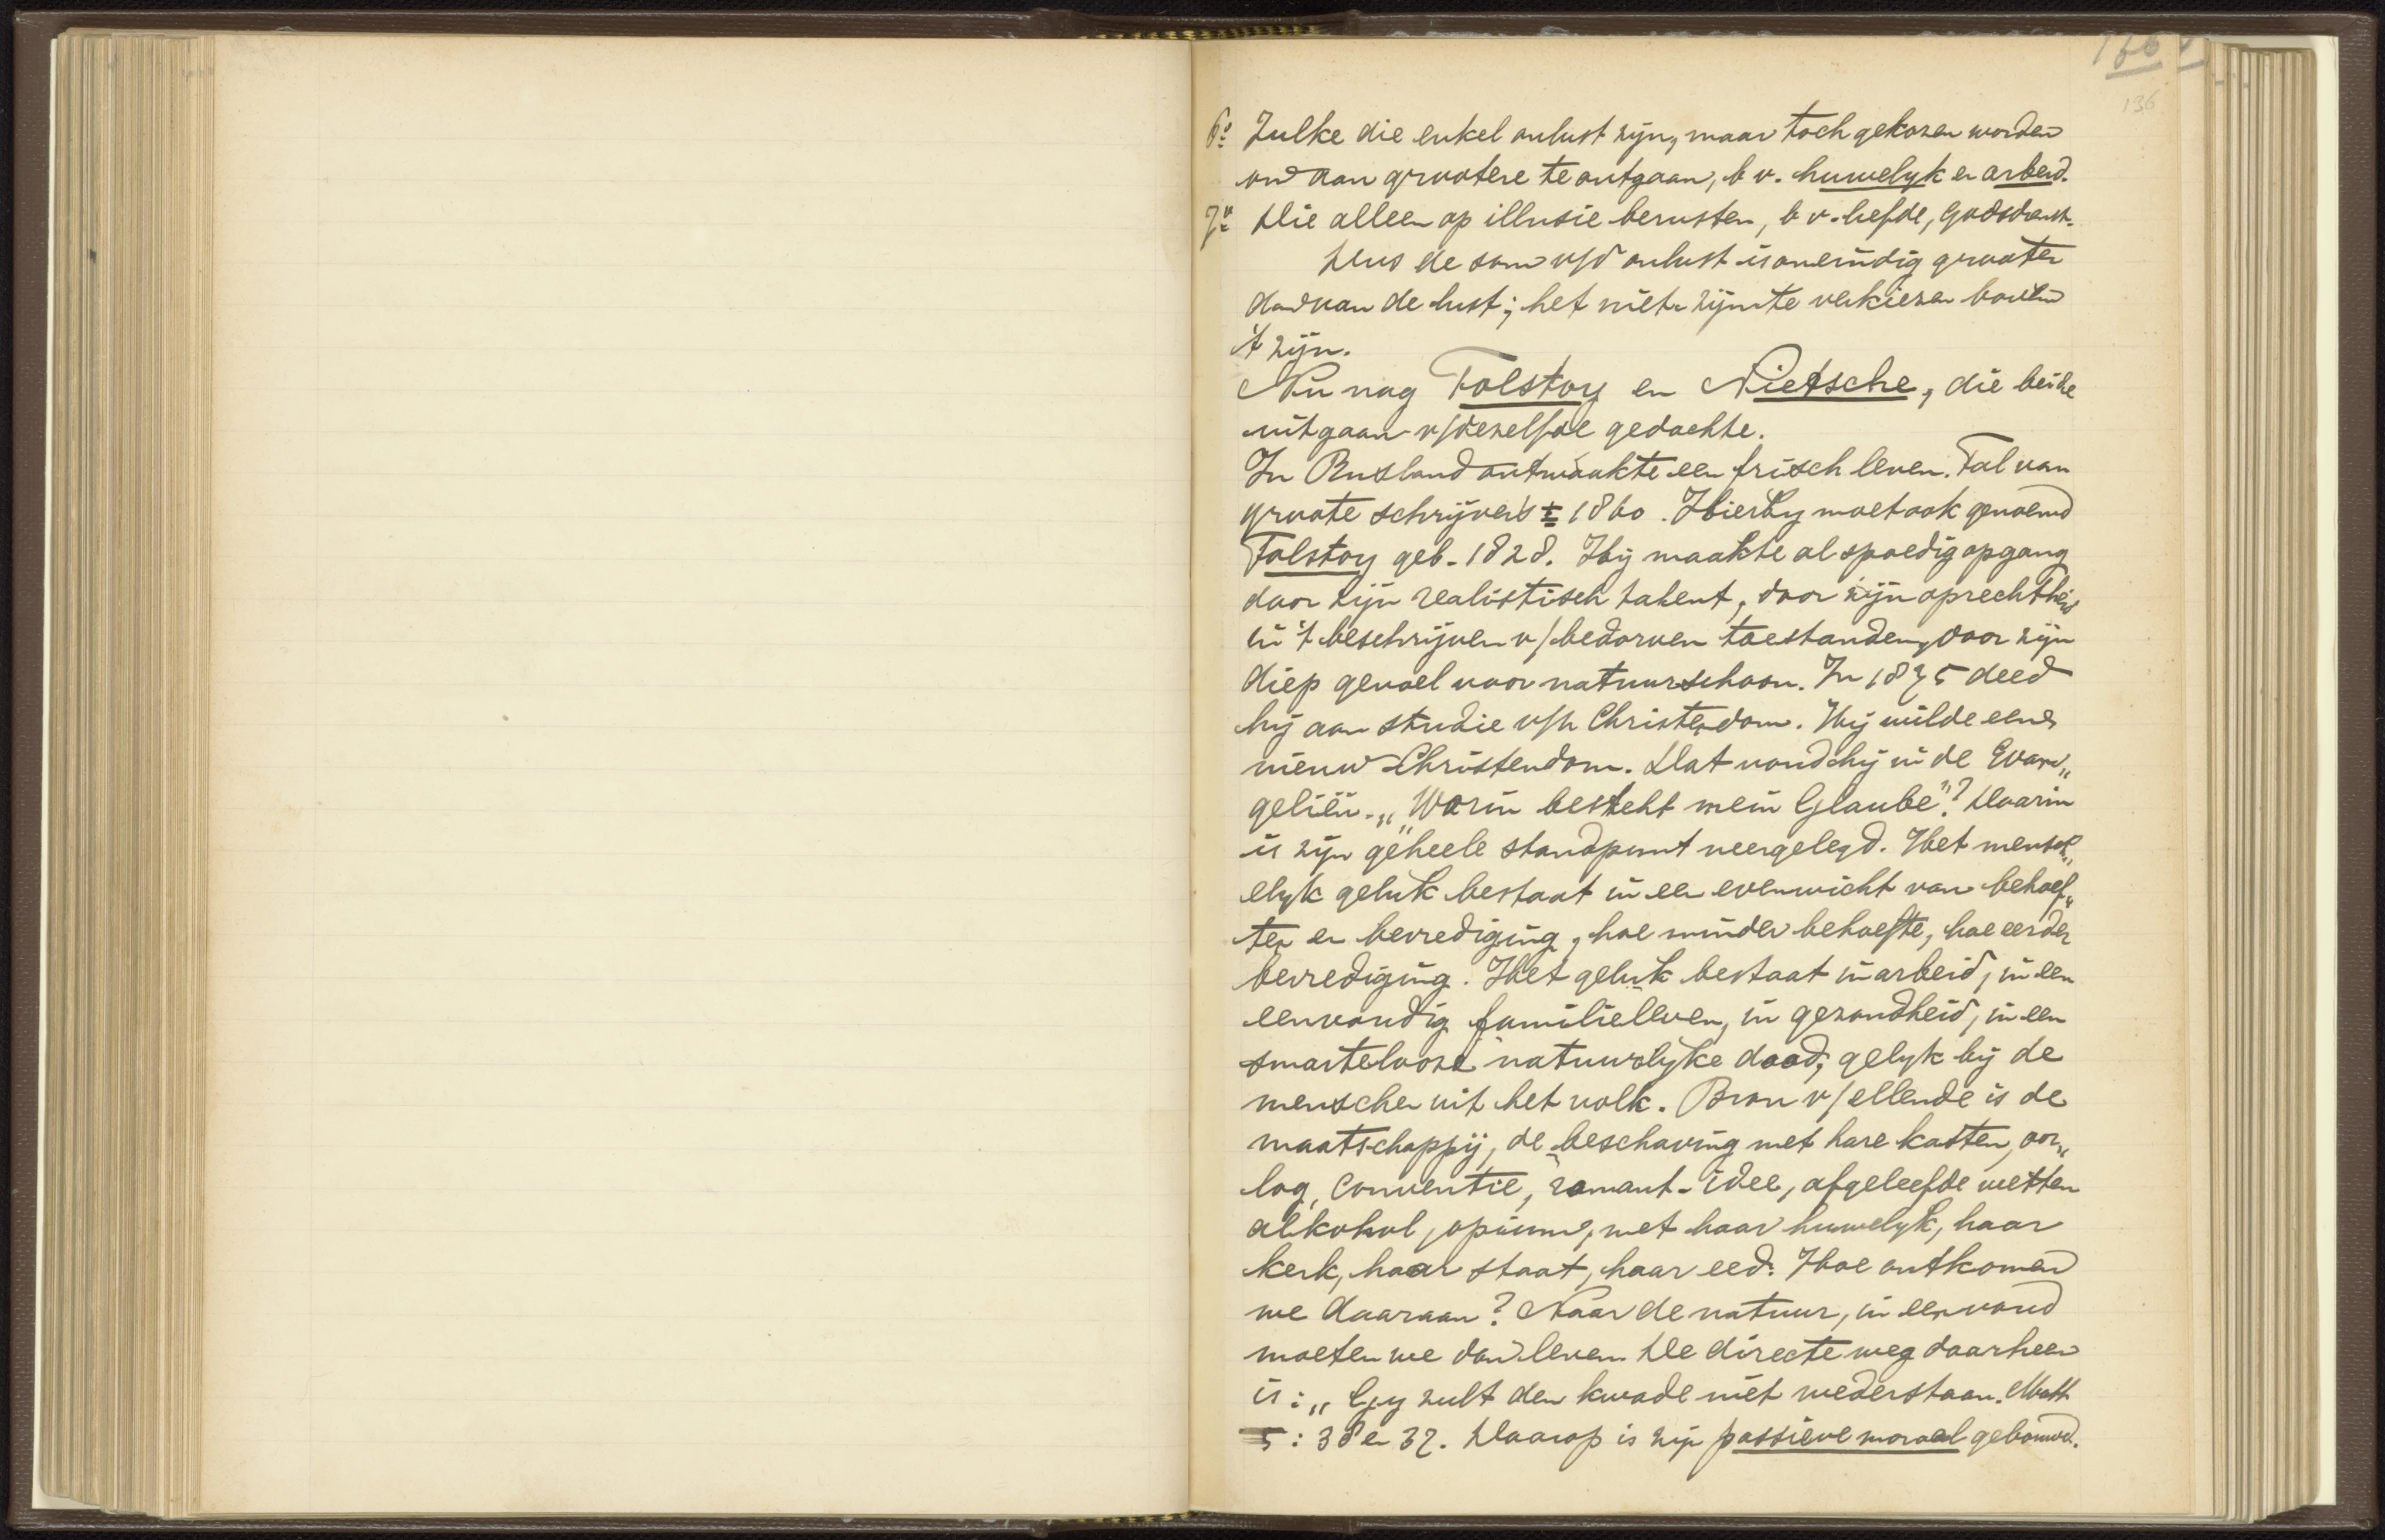 166
136
6º Zulke die enkel onlust zijn, maar toch gekozen worden
om aan grootere te ontgaan, b v. huwelyk en arbeid.
7º Die alleen op illusie berusten, b v. liefde, godsdienst.
Dus de som v/d onlust is oneindig grooter
dan van de lust; het niet-zijn te verkiezen boven
't zijn.
Nu nog Tolstoy en Nietsche, die beide
uitgaan v/dezelfde gedachte.
In Rusland ontwaakte een frisch leven. Tal van
groote schrijvers ± 1860. Hierby moet ook genoemd
Tolstoy geb. 1828. Hij maakte al spoedig opgang
door zijn realistisch talent, door zijn oprechtheid
in 't beschrijven v/bedorven toestanden, door zijn
diep gevoel voor natuurschoon. In 1875 deed
hij aan studie v/h Christendom. Hij wilde een
nieuw Christendom. Dat vond hij in de Evan„
geliën. „Worin besteht mein Glaube"? Daarin
is zijn geheele standpunt neergelegd. Het mensch„
elyk geluk bestaat in een evenwicht van behoef„
ten en bevrediging, hoe minder behoefte, hoe eerder
bevrediging. Het geluk bestaat in arbeid, in een
eenvoudig familieleven, in gezondheid, in een
smartelooze natuurlyke dood, gelyk bij de
menschen uit het volk. Bron v/ellende is de
maatschappij, de beschaving met hare kasten, oor„
log, conventie, romant. idee, afgeleefde wetten
alkohol, opium, met haar huwelyk, haar
kerk, haar staat, haar eed. Hoe ontkomen
we daaraan? Naar de natuur, in eenvoud
moeten we dan leven. De directe weg daarheen
is: „Gy zult den kwade niet wederstaan. Matth
5: 38 en 39. Daarop is zijn passieve moraal gebouwd.